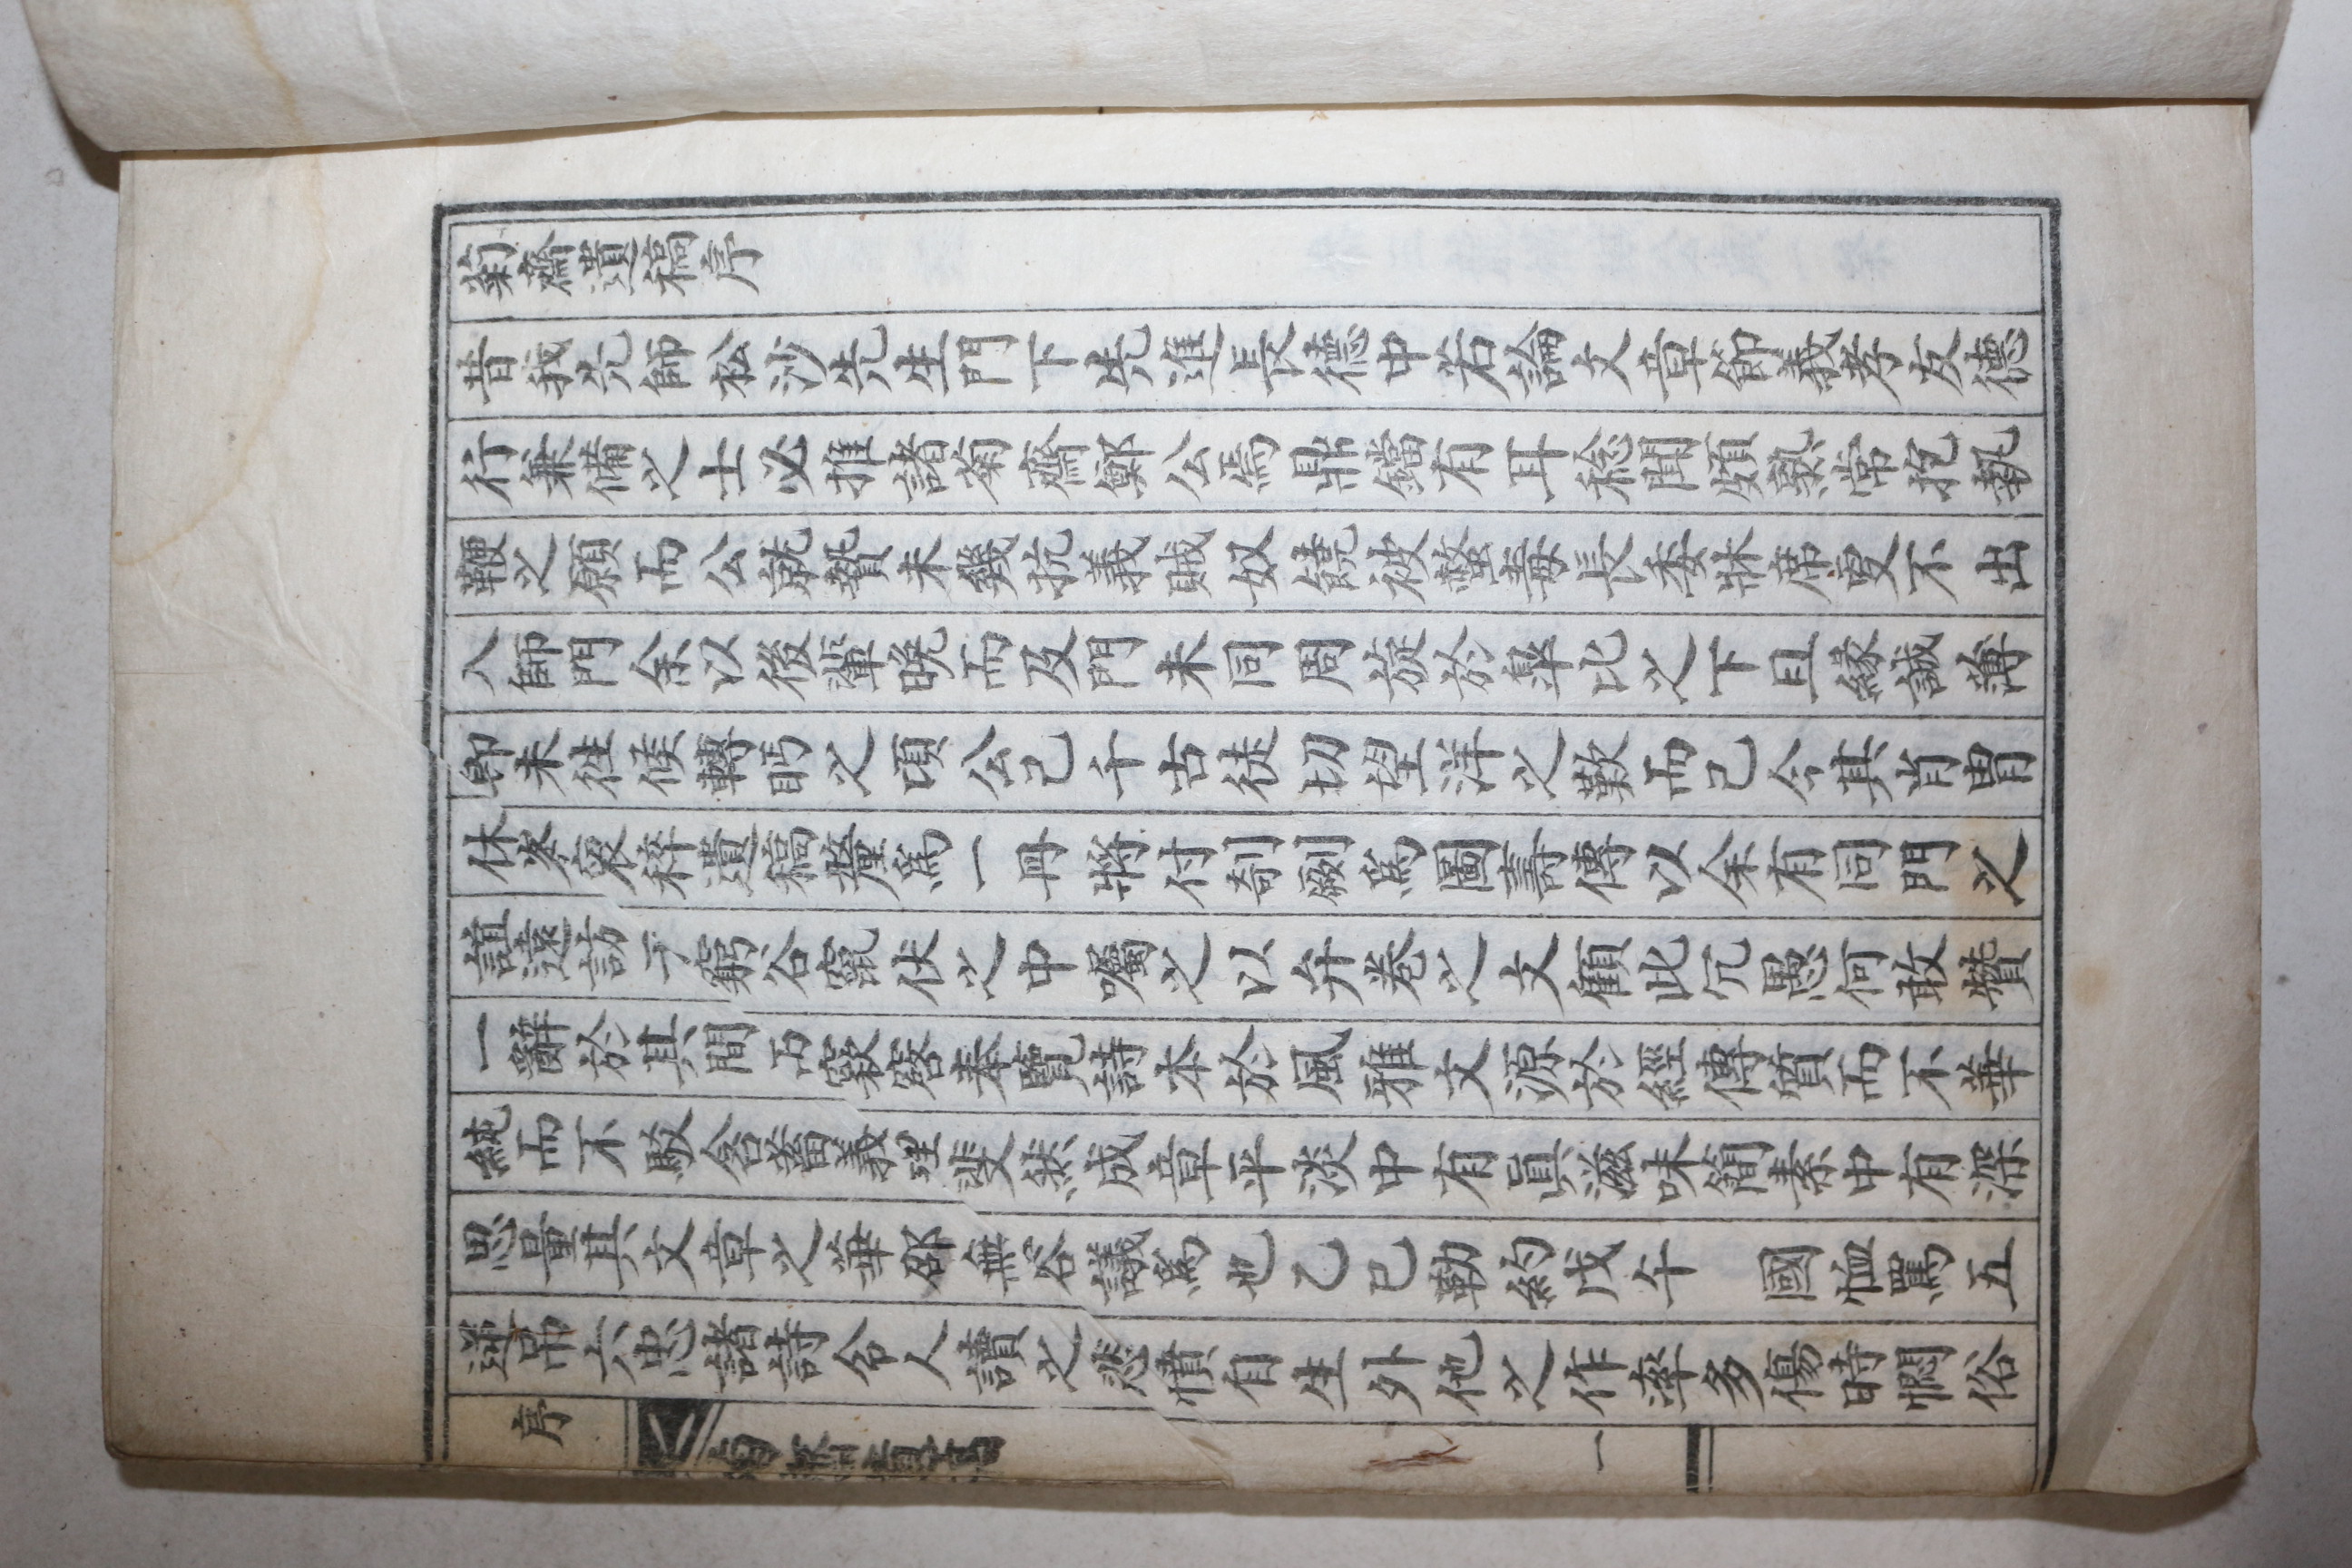 菊齋遺稿序
昔我先師松沙先生門下先進長德中若論文章節義孝友德
行兼備之士必推諸菊齋鄭公焉鼎鐺有耳稔聞頗熟常抱執
鞭之願而公就贄未幾抗義賊奴饒被螫毒長委牀席更不出
入師門余以後輩晩而及門未同周旋於皐比之下且緣誠薄
卽未徃候轉眄之頃公已千古徒切望洋之歎而已今其肖胄
休炎裒稡遺稿釐爲一冊將付剞劂爲圖壽傳以余有同門之
誼遠訪于窮谷竄伏之中囑之以弁卷之文顧此冗愚何敢贊
一辭於其間而竅啓奉覽詩本於風雅文源於經傳質而不華
純而不駁含蓄義理斐然成章平淡中有眞滋味簡素中有深
思量其文章之華郁無容議爲也乙巳勒約戊午國恤罵五
逆吊六忠諸詩令人讀之悲憤自生外他之作率多傷時憫俗
序
菊齋遺稿
一